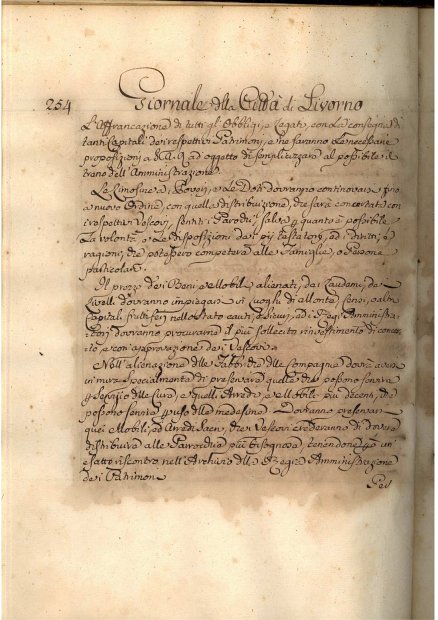 254
Giornale della Città di Livorno
L'Affrancazione di tutti gl'Obblighi, e Legati, con la consegna di
tanti Capitali dei respettivi Patrimonj, e ne faranno le necessarie
proposizioni a S.A.R. ad oggetto di semplicizzare al possibile il
treno dell'Amministrazione.
Le Limosine ai Poveri, e le Doti dovranno continovare fino
a nuovo Ordine, con quella distribuzione, che sarà concertata con
i respettivi Vescovi, sentiti i Parochi, salva quanto è possibile
la volontà, e le disposizioni dei pij testatori, ed i diritti, e
ragioni, che potessero competere alle Famiglie, o Persone
particolari.
Il prezzo dei Beni, e Mobili alienati, dei Laudemj, dei
Livelli dovranno impiegarsi in Luoghi di Monte, Censi, o altri
Capitali fruttiferi nello Stato cauti, e sicuri, ed i Regi Amministra-
tori dovranno procurarne il più sollecito rinvestimento di concer-
to, e con approvazione dei Vescovi.
Nell'alienazione delle Fabbriche delle Compagnie dovrà aver-
si in mira specialmente di preservare quelle che possono servire
per servizio delle Cure, e quelli Arredi, e Mobili più decenti, che
possono servire per uso delle medesime. Dovranno preservarsi
quei Mobili, ed Arredi Sacri, che i Vescovi crederanno di dover
distribuire alle Parrocchie più bisognose, tenendone però un
esatto riscontro nell'Archivio della Regia Amministrazione
dei Patrimonj